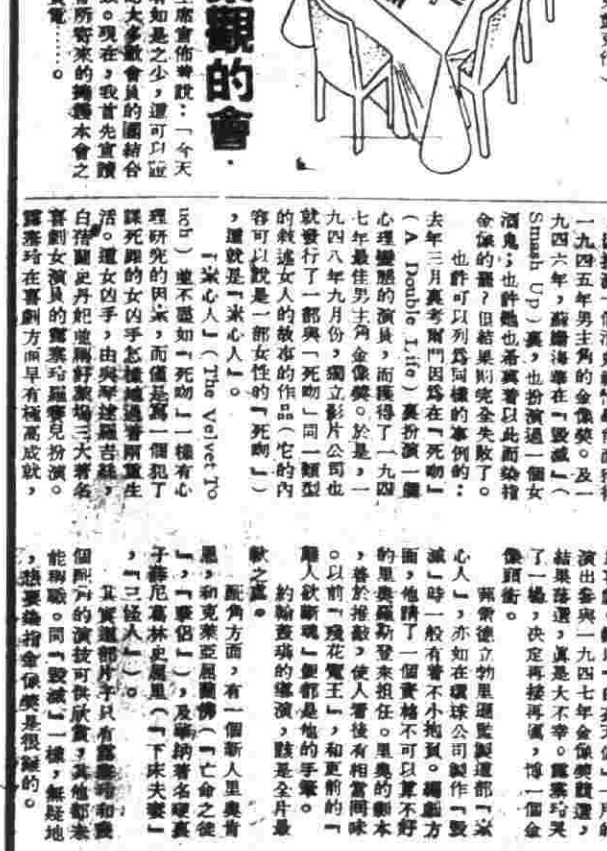 觀的會
席宣佈着說：「今天
如是之少，還可以證
大多數會員的團結合
。現在，我首先宣讀
所寄來的擁護本會之
電……。
一九四五年男主角的金像獎。及一
九四六年，蘇珊海華在『毀滅』（
Smash Up）裏，也扮演過一個女
酒鬼；也許她也希冀着以此而染指
金像的罷？但結果則完全失敗了。
也許可以列爲同樣的事例的：
去年三月裏考爾門因爲在『死吻』
（A Double Life）裏扮演一個
心理變態的演員，而獲得了一九四
七年最佳男主角金像獎。於是，一
九四八年九月份，獨立影片公司也
就發行了一部與『死吻』同一類型
的敘述女人的故事的作品（它的內
容可以說是一部女性的『死吻』）
，這就是『心人』。
『心人』（The Velvet To
uch）並不盡如『死吻』一樣有心
理研究的因，而僅是寫一個犯了
謀死罪的女凶手怎樣地過着兩重生
活。這女凶手，由與琴逑羅吉絲，
白蓓蘭史丹妃並稱好萊塢三大著名
喜劇女演員的露塞玲羅賽兒扮演。
露塞玲在喜劇方面早有極高成就，
演出參與一九四七年金像獎競選，
結果落選，眞是大不幸。露塞玲哭
了一場，決定再接再厲，博一個金
像頭銜。
弗雷德立勃里遜監製這部『
心人』，亦如在環球公司製作『毀
滅』時一般有着不小抱負。編劇方
面，他請了一個資格不可以算不好
的里奧羅斯登來担任。里奧的劇本
，善於推敲，使人看後有相當囘味
。以前『殘花電王』，和更前的『
人欲斷魂』便都是他的手筆。
約翰蓋琪的導演，該是全片最
之處。
配角方面，有一個新人里奧肯
恩，和克萊亞屈蘭佛（『亡命之徒
』，『侶』），及華納著名硬裏
子薛尼葛林史屈里（『下床夫妻』
，『三怪人』）。
其實這部片子只有露塞玲和
個配角的演技可供欣賞，其他都未
能稱職。同『毀滅』一樣，無疑地
，想要染指金像獎是很難的。